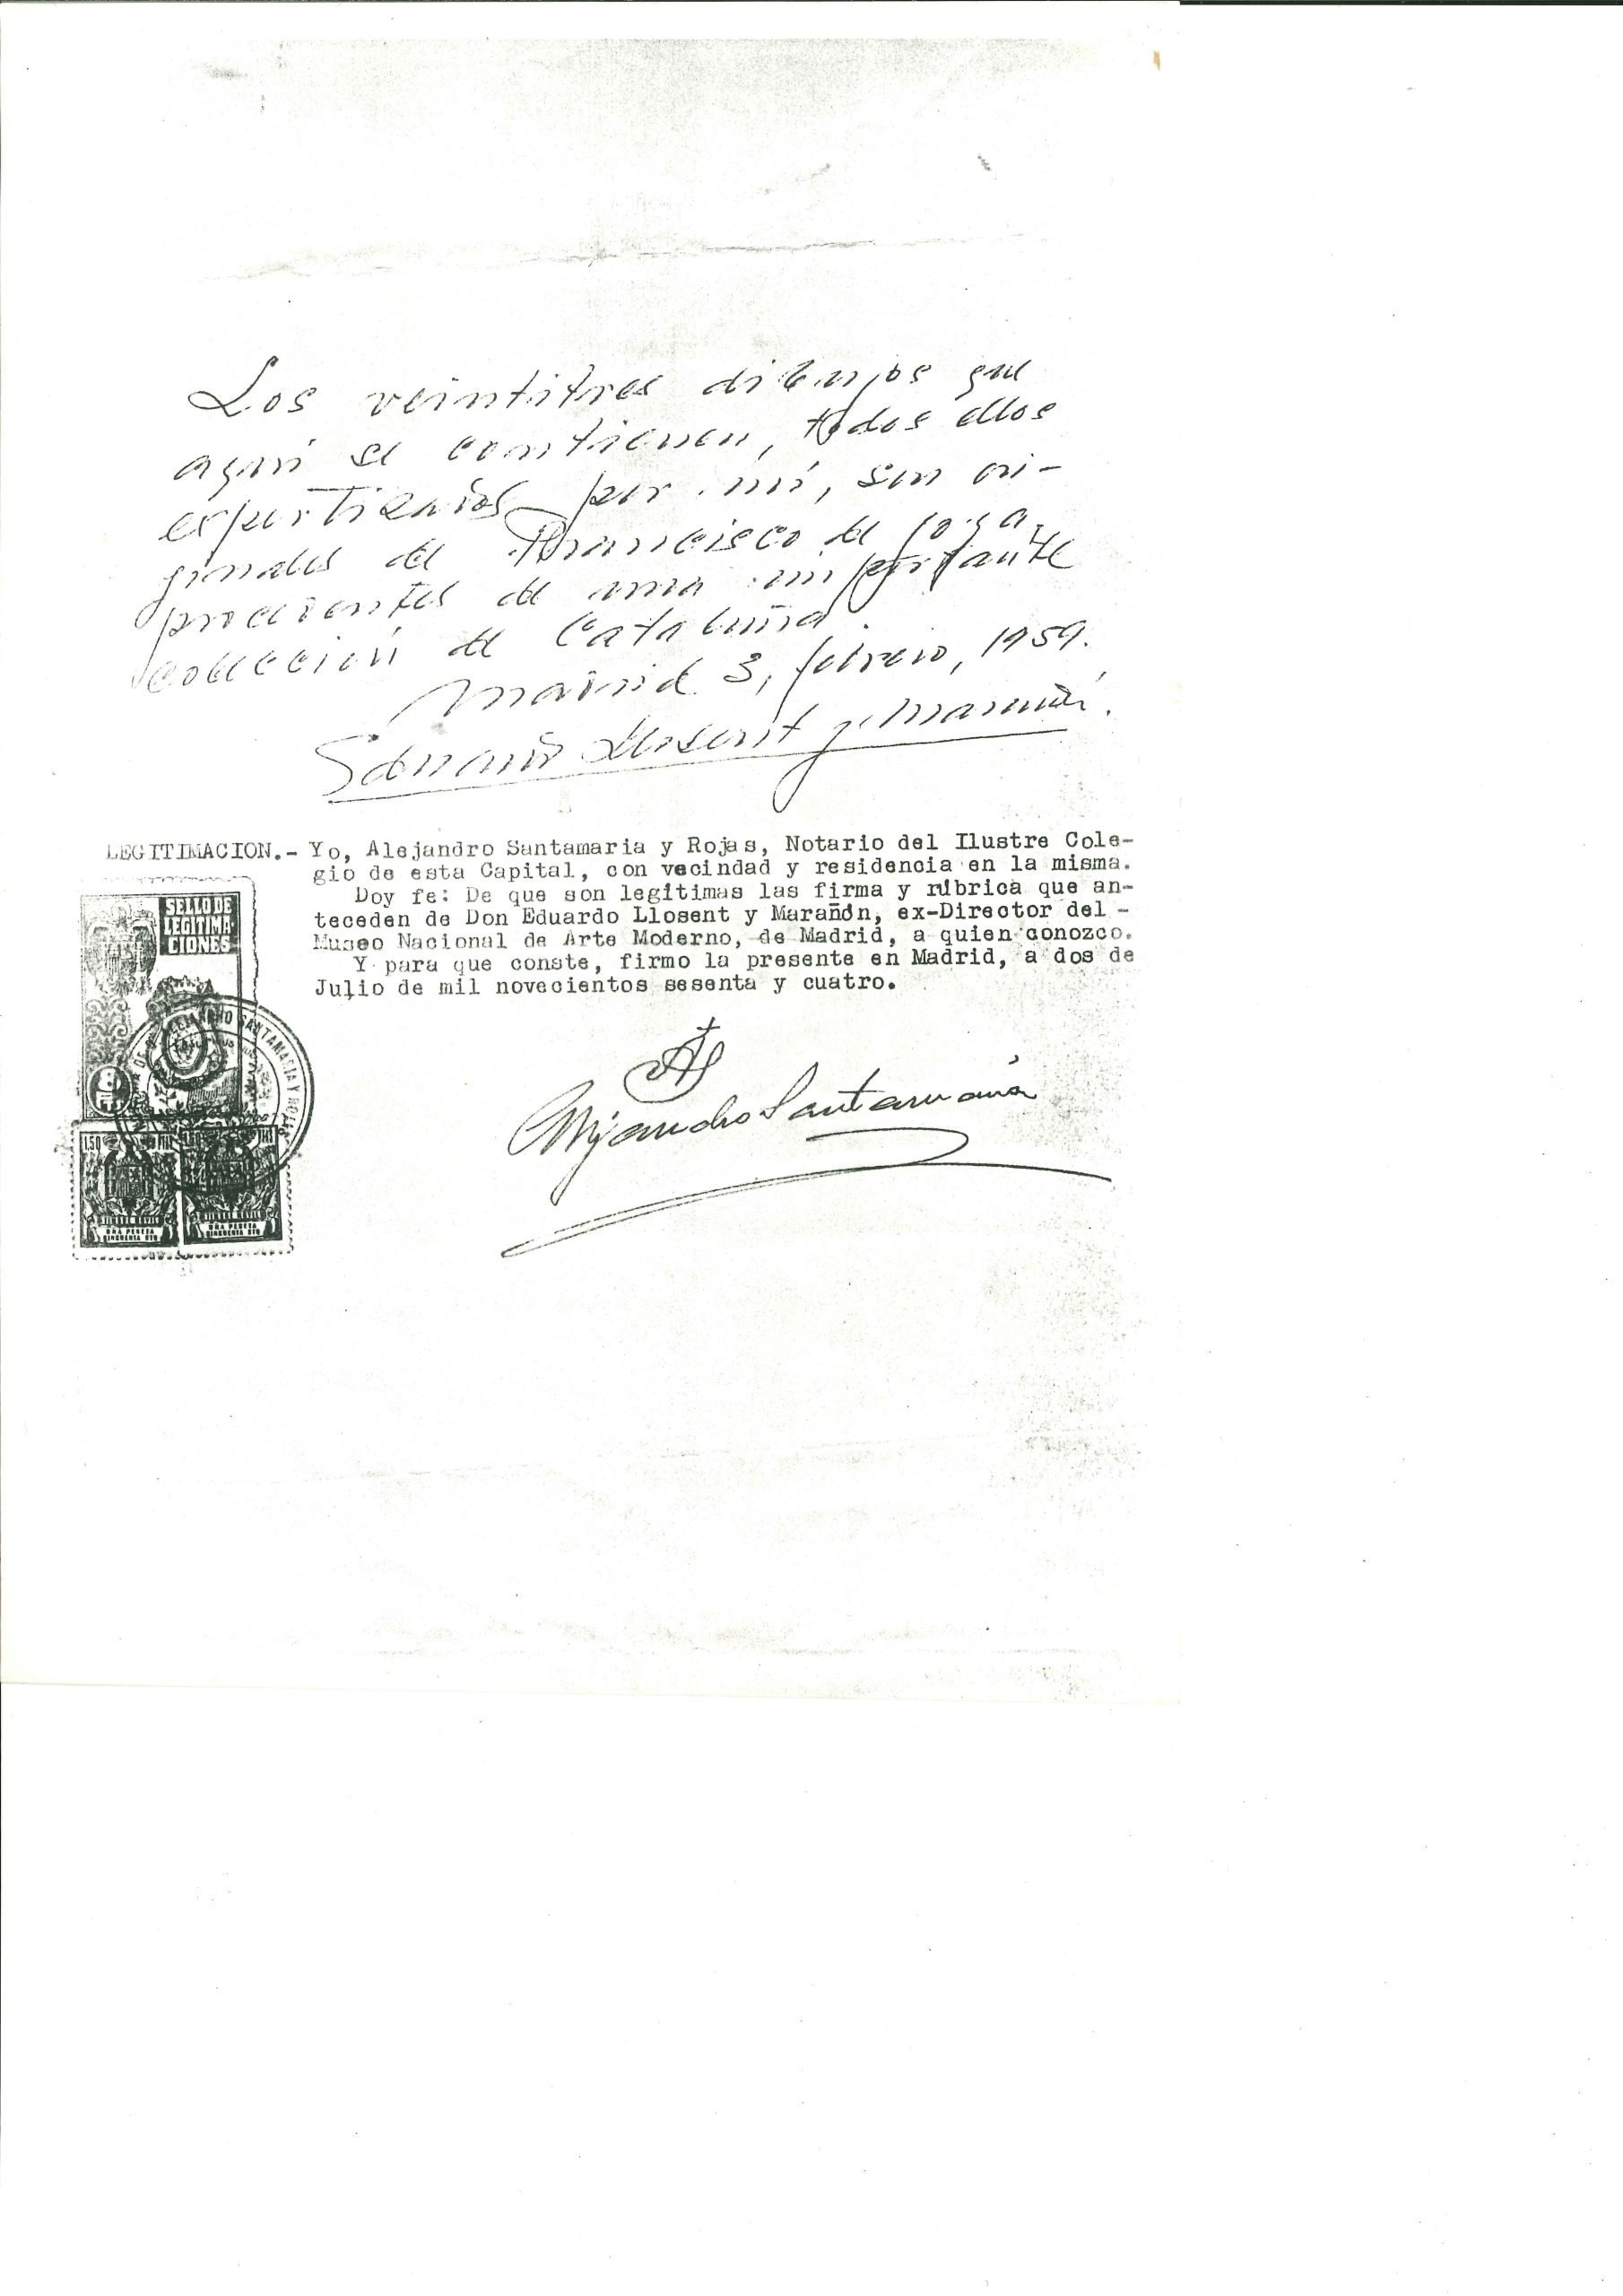 Los veintitres dibujos que
aquí se contienen, todos ellos
expertizados por mí, son ori-
ginales de Francisco de Goya,
procedentes de una importante
colección de Cataluña.
Madrid 3, febrero, 1959.
Eduardo Llosent y Marañón.
LEGITIMACION.- Yo, Alejandro Santamaria y Rojas, Notario del Ilustre Cole-
gio de esta Capital, con vecindad y residencia en la misma.
Doy fe: De que son legítimas las firma y rúbrica que an-
teceden de Don Eduardo Llosent y Marañón, ex-Director del -
Museo Nacional de Arte Moderno, de Madrid, a quien conozco.
Y para que conste, firmo la presente en Madrid, a dos de
Julio de mil novecientos sesenta y cuatro.
SELLO DE
LEGITIMA-
CIONES
ALEJANDRO SANTAMARIA Y ROJAS
8
1,50
UNA PESETA
CINCUENTA CTS
UNA PESETA
CINCUENTA CTS
Alejandro Santamaria